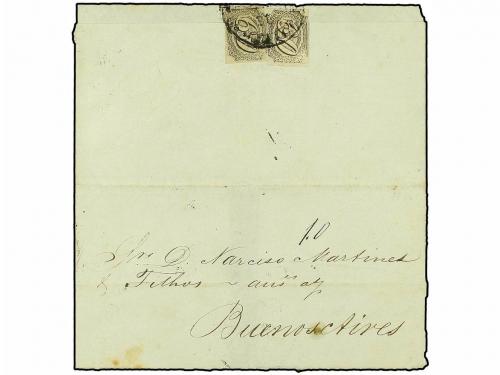 10
Sñrs D. Narciso Martines
& Filhos
Buenos Aires